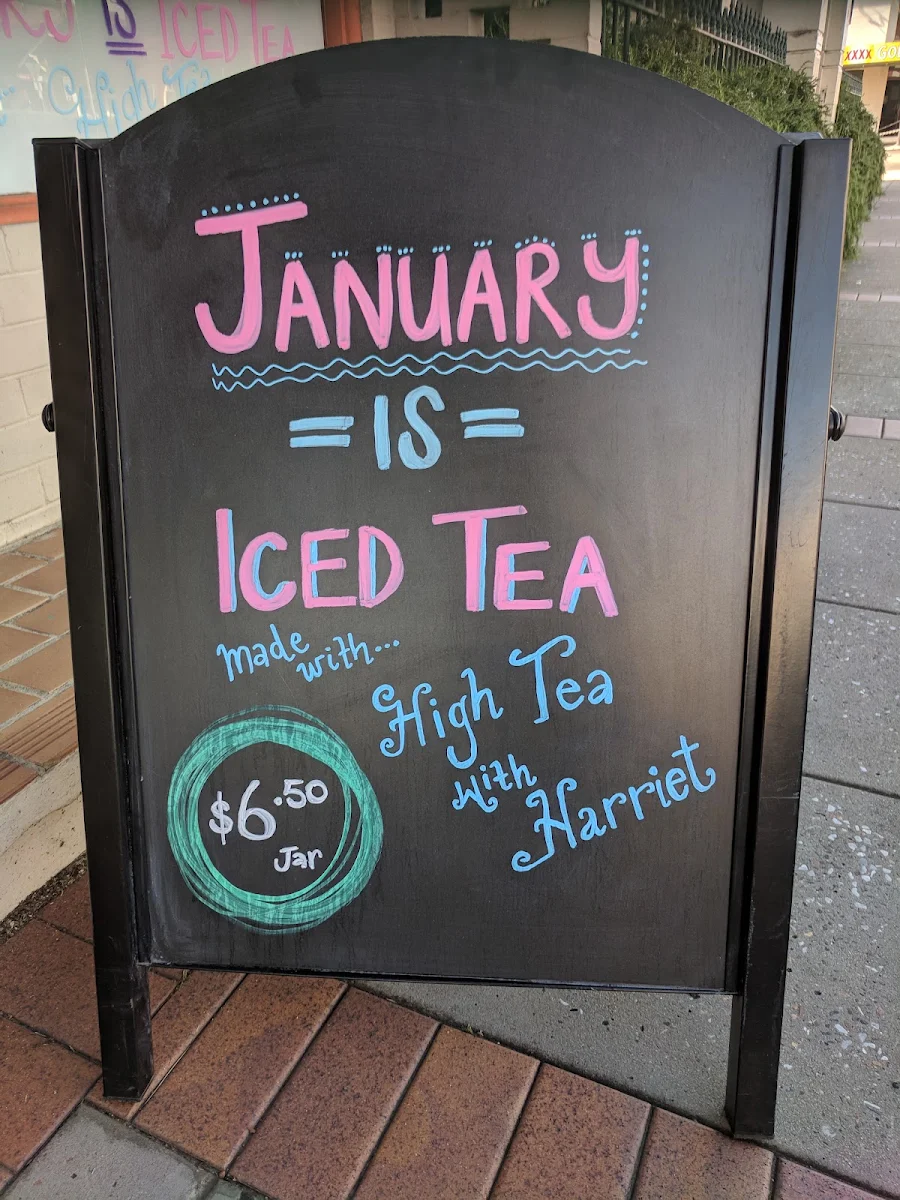 IS ICED TEA
High Tea
XXXX GO
JANUARY
=IS=
ICED TEA
made with...
High Tea
with
Harriet
$6.50
Jar